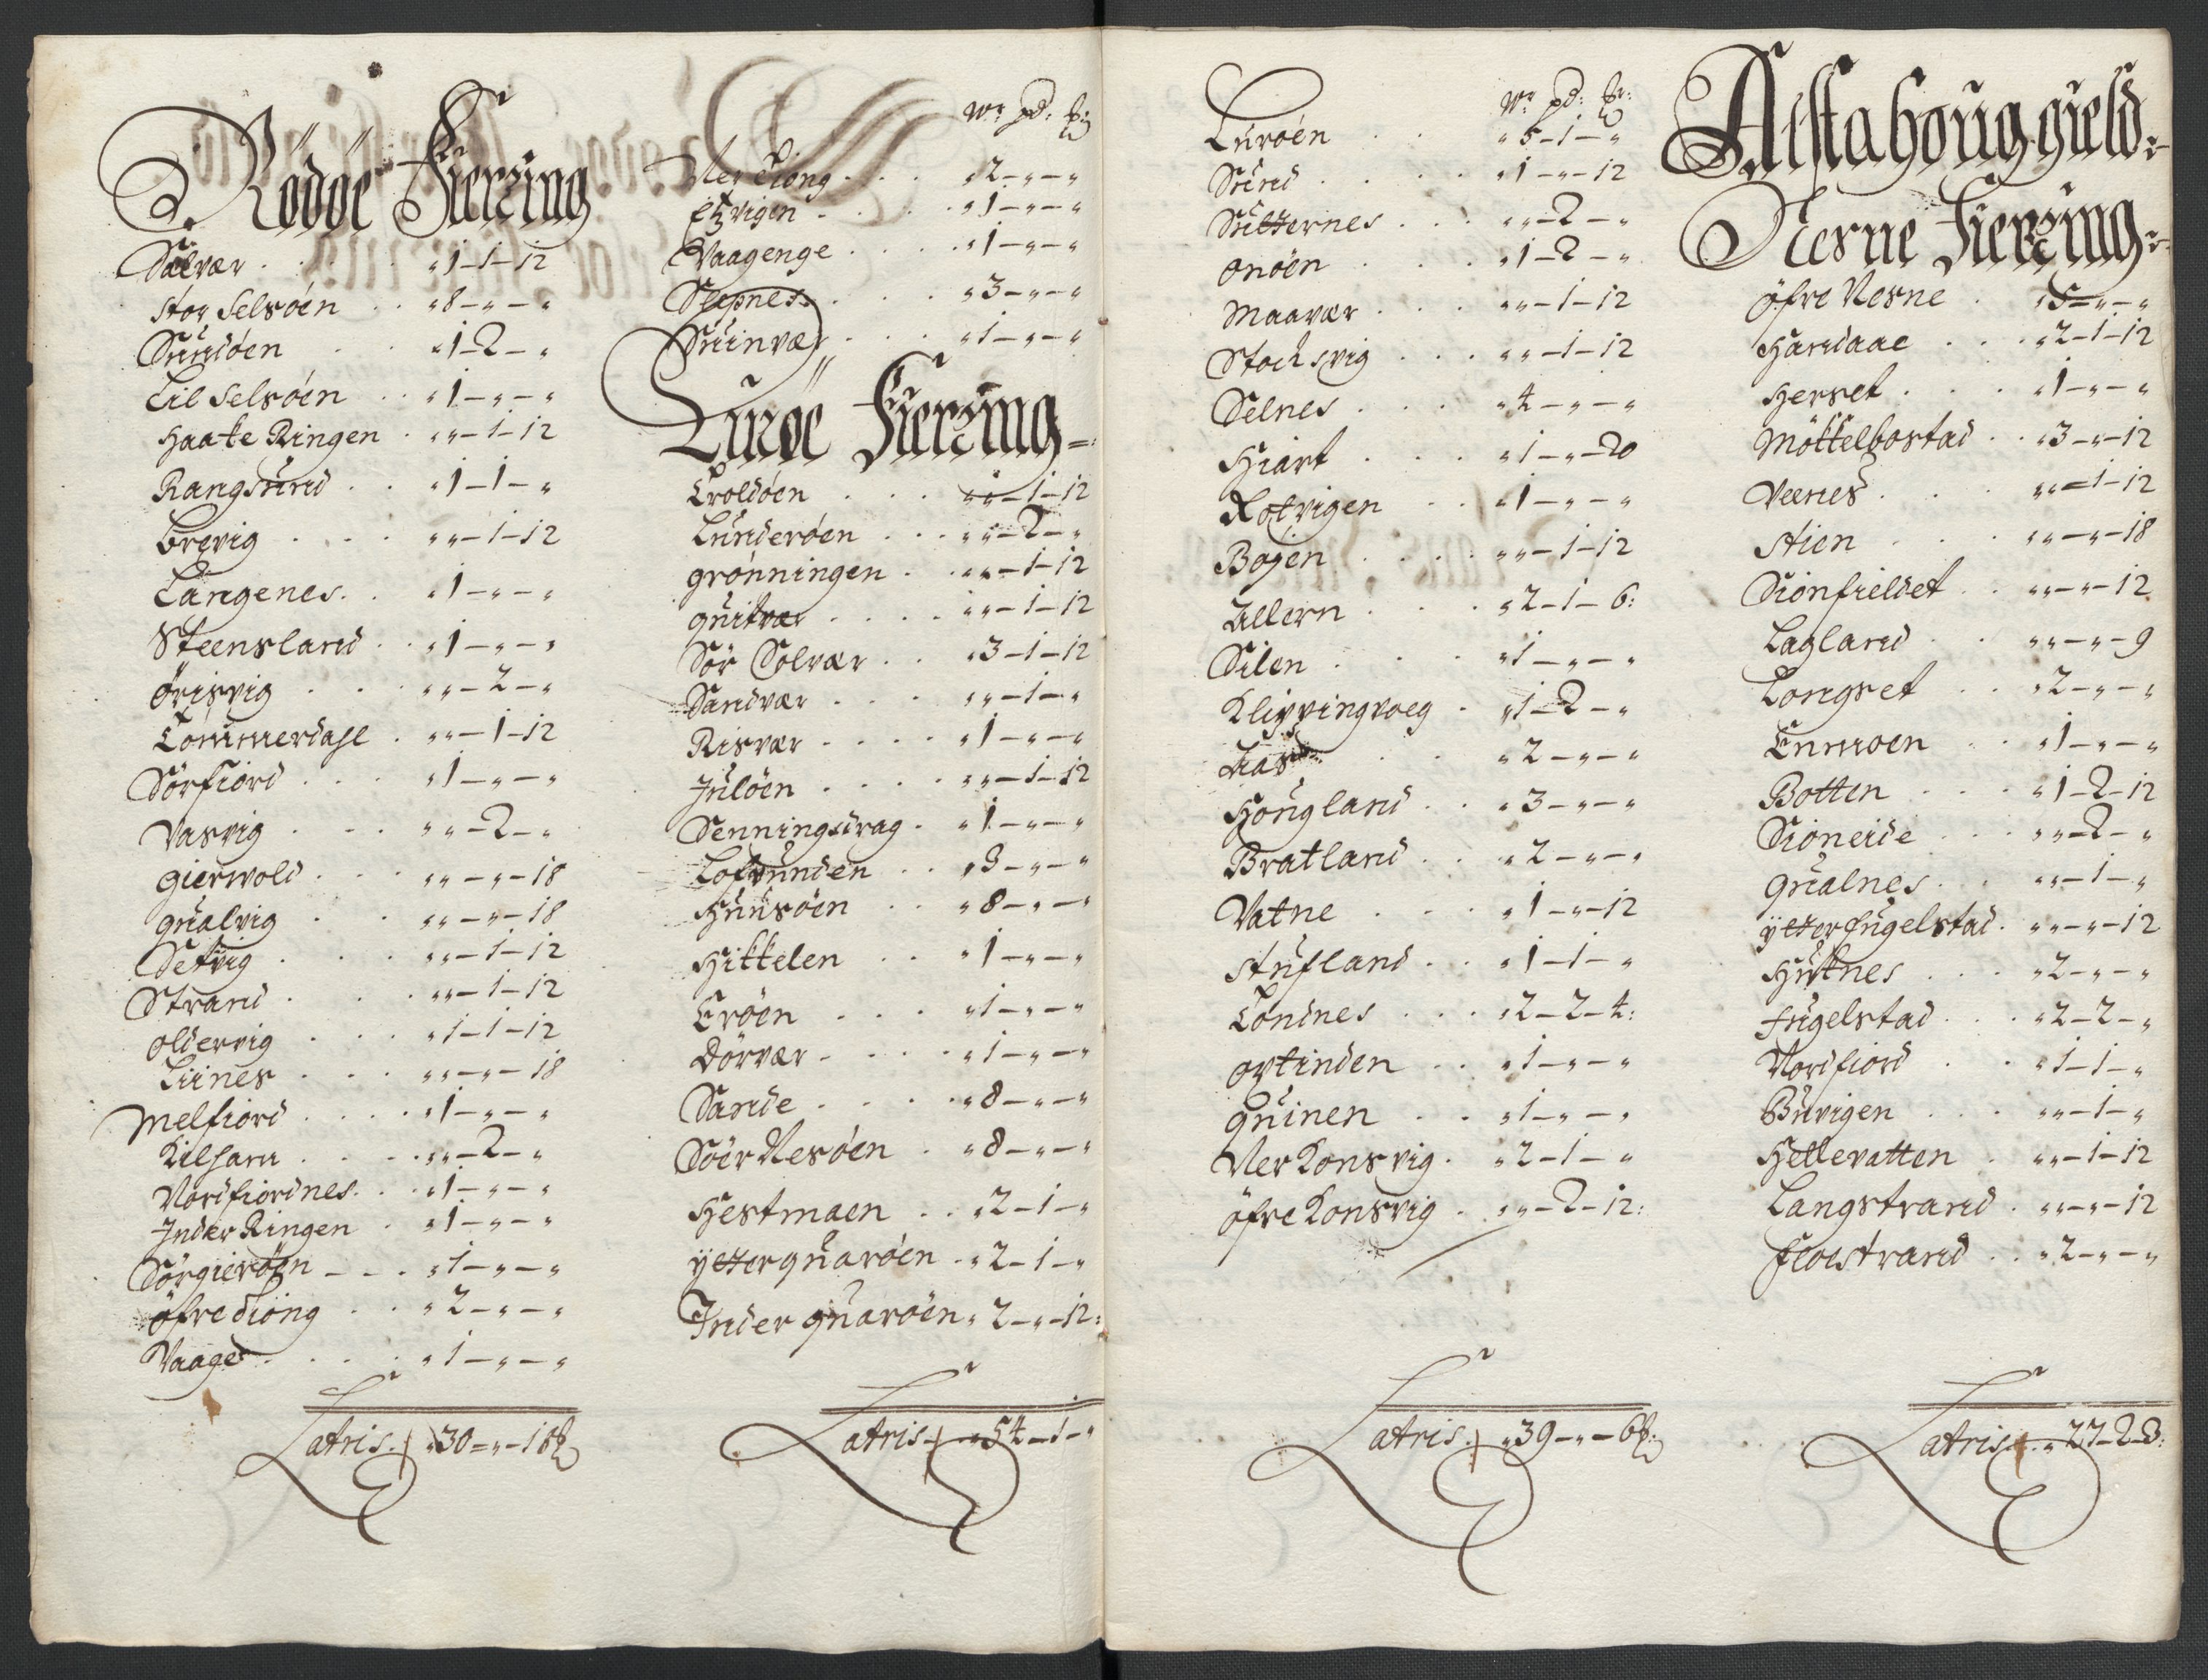 Rödöe Fierring
Sælvær . . . „1-1-12
Stor Selsöen . . „8-„-„
Sundöen . . „1-2-„
Lil Selsöen . . „1-„-„
Haate Ringen . „„-1-12
Rangsund . . „1-1-„
Brevig . . . „„-1-12
Langenes . . „1-„-„
Steensland . . „1-„-„
Örisvig . . . „„-2-„
Tömmerdahl . „„-1-12
Sörfiord . . . „1-„-„
Vasvig . . . „„-2-„
Gierwold . . . „„-„-18
Qualvig . . „„-„-18
Setvig . . . „„-1-12
Strand . . . „„-1-12
Oldervig . . . „1-1-12
Liines . . . „„-„-18
Melfiord . . . „1-„-„
Kilham . . . „„-2-„
Nordfiordnes . . „1-„-„
Inder Ringen . „1-„-„
Sörgieröen . . . „1-„-„
Öfre Diong . . „2-„-„
Vaager . . . „1-„-„
Latris . „30-„-18
Wr pd:
Ner Diong . . . „2-„-„
Etzvigen . . . „1-„-„
Vaagenge . . . „1-„-„
Sepnes . . . „3-„-„
Suinvær . . . „1-„-„
Luröe Fierring
Troldöen . . . „„-1-12
Lunderöen . . . „„-2-„
Grönningen . . „„-1-12
Quitvær . . . . „„-1-12
Sör Solvær . . „3-1-12
Sandvær . . . „„-1-„
Risvær . . . . „1-„-„
Julöen . . . . „„-1-12
Senningsdrag . „1-„-„
Lofvunden . . „3-„-„
Huusöen . . „8-„-„
Hikkelen . . „1-„-„
Eröen . . . „1-„-„
Dörvær . . . . „1-„-„
Sande . . . . „8-„-„
Söer Nesöen . „8-„-„
Hestmaen . . „2-1-„
Ytter Quaröen . „2-1-„
Inder Quaröen „2-„-12:
Latris . „54-1-„
Wr pd:
Luröen . . „5-1-„
Sund . . . . „1-„-12
Sütternes . . . „„-2-„
Onöen . . . „1-2-„
Maavær . . . „„-1-12
Stochsvig . . . „„-1-12
Selnes . . . „4-„-„
Hiart . . . „1-„-20
Rotvigen . . „1-„-„
Bogen . . . . „„-1-12
Allern . . . „2-1-6:
Silen . . . „1-„-„
Klipvingvoeg . „1-2-„
„2-„-„
Hougland . . „3-„-„
Bratland . . „2-„-„
Vatne . . . „1-„-12
Stufland . . „1-1-„
Tondnes . . . „2-2-4:
Optinden . . „1-„-„
Quinen . . „1-„-„
Ner Konsvig . „2-1-„
Öfre Konsvig . „„-2-12:
Latris . „39-„-6
Alstahoug gield
Nesne Fierring
Öfre Nesne . „5-„-„
Handaae . . . „2-1-12
Herset . . . „1-„-„
Möttelbostad . . „3-„-12
Veenes . . . „„-1-12
Stien . . . „„-„-18
Sionfieldet . . „„-„-12
Lagland . . „„-„-9
Longset . . „2-„-„
Enmoen . . „1-„-„
Botten . . . „1-2-12
Sioneide . . . „„-2-„
Qualnes . . „„-1-„
Ytterfugelstad . „„-„-12
Husnes . . . „2-„-„
Fugelstad . . . „2-2-„
Nordfiord . . „1-1-„
Buvigen . . . „„-1-„
Hellevatten . „„-1-12
Langstrand . „„-„-12
Floestrand . . „2-„-„
Latris . „27-2-3: